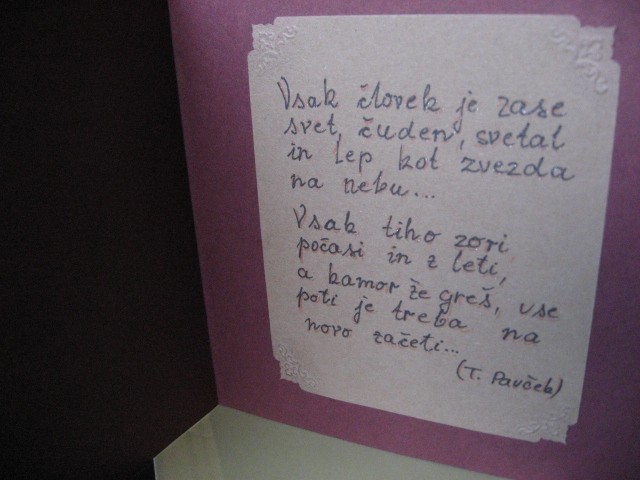 Vsak človek je zase
svet, čuden, svetal
in lep kot zvezda
na nebu...
Vsak tiho zori
počasi in z leti,
a kamor že greš, vse
poti je treba na
novo začeti...
(T. Pavček)